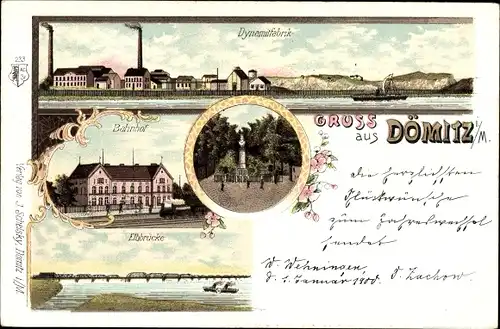 Dynamitfabrik
233
Bahnhof
GRUSS
aus DÖMITZ i/M.
Die herzlichsten
Glückwünsche
zum Jahreswechsel
sendet
Elbbrücke
W. Wehningen,
d. 1. Januar 1900. D. Zachow.
Verlag von J. Schelsky, Dömitz i/M.